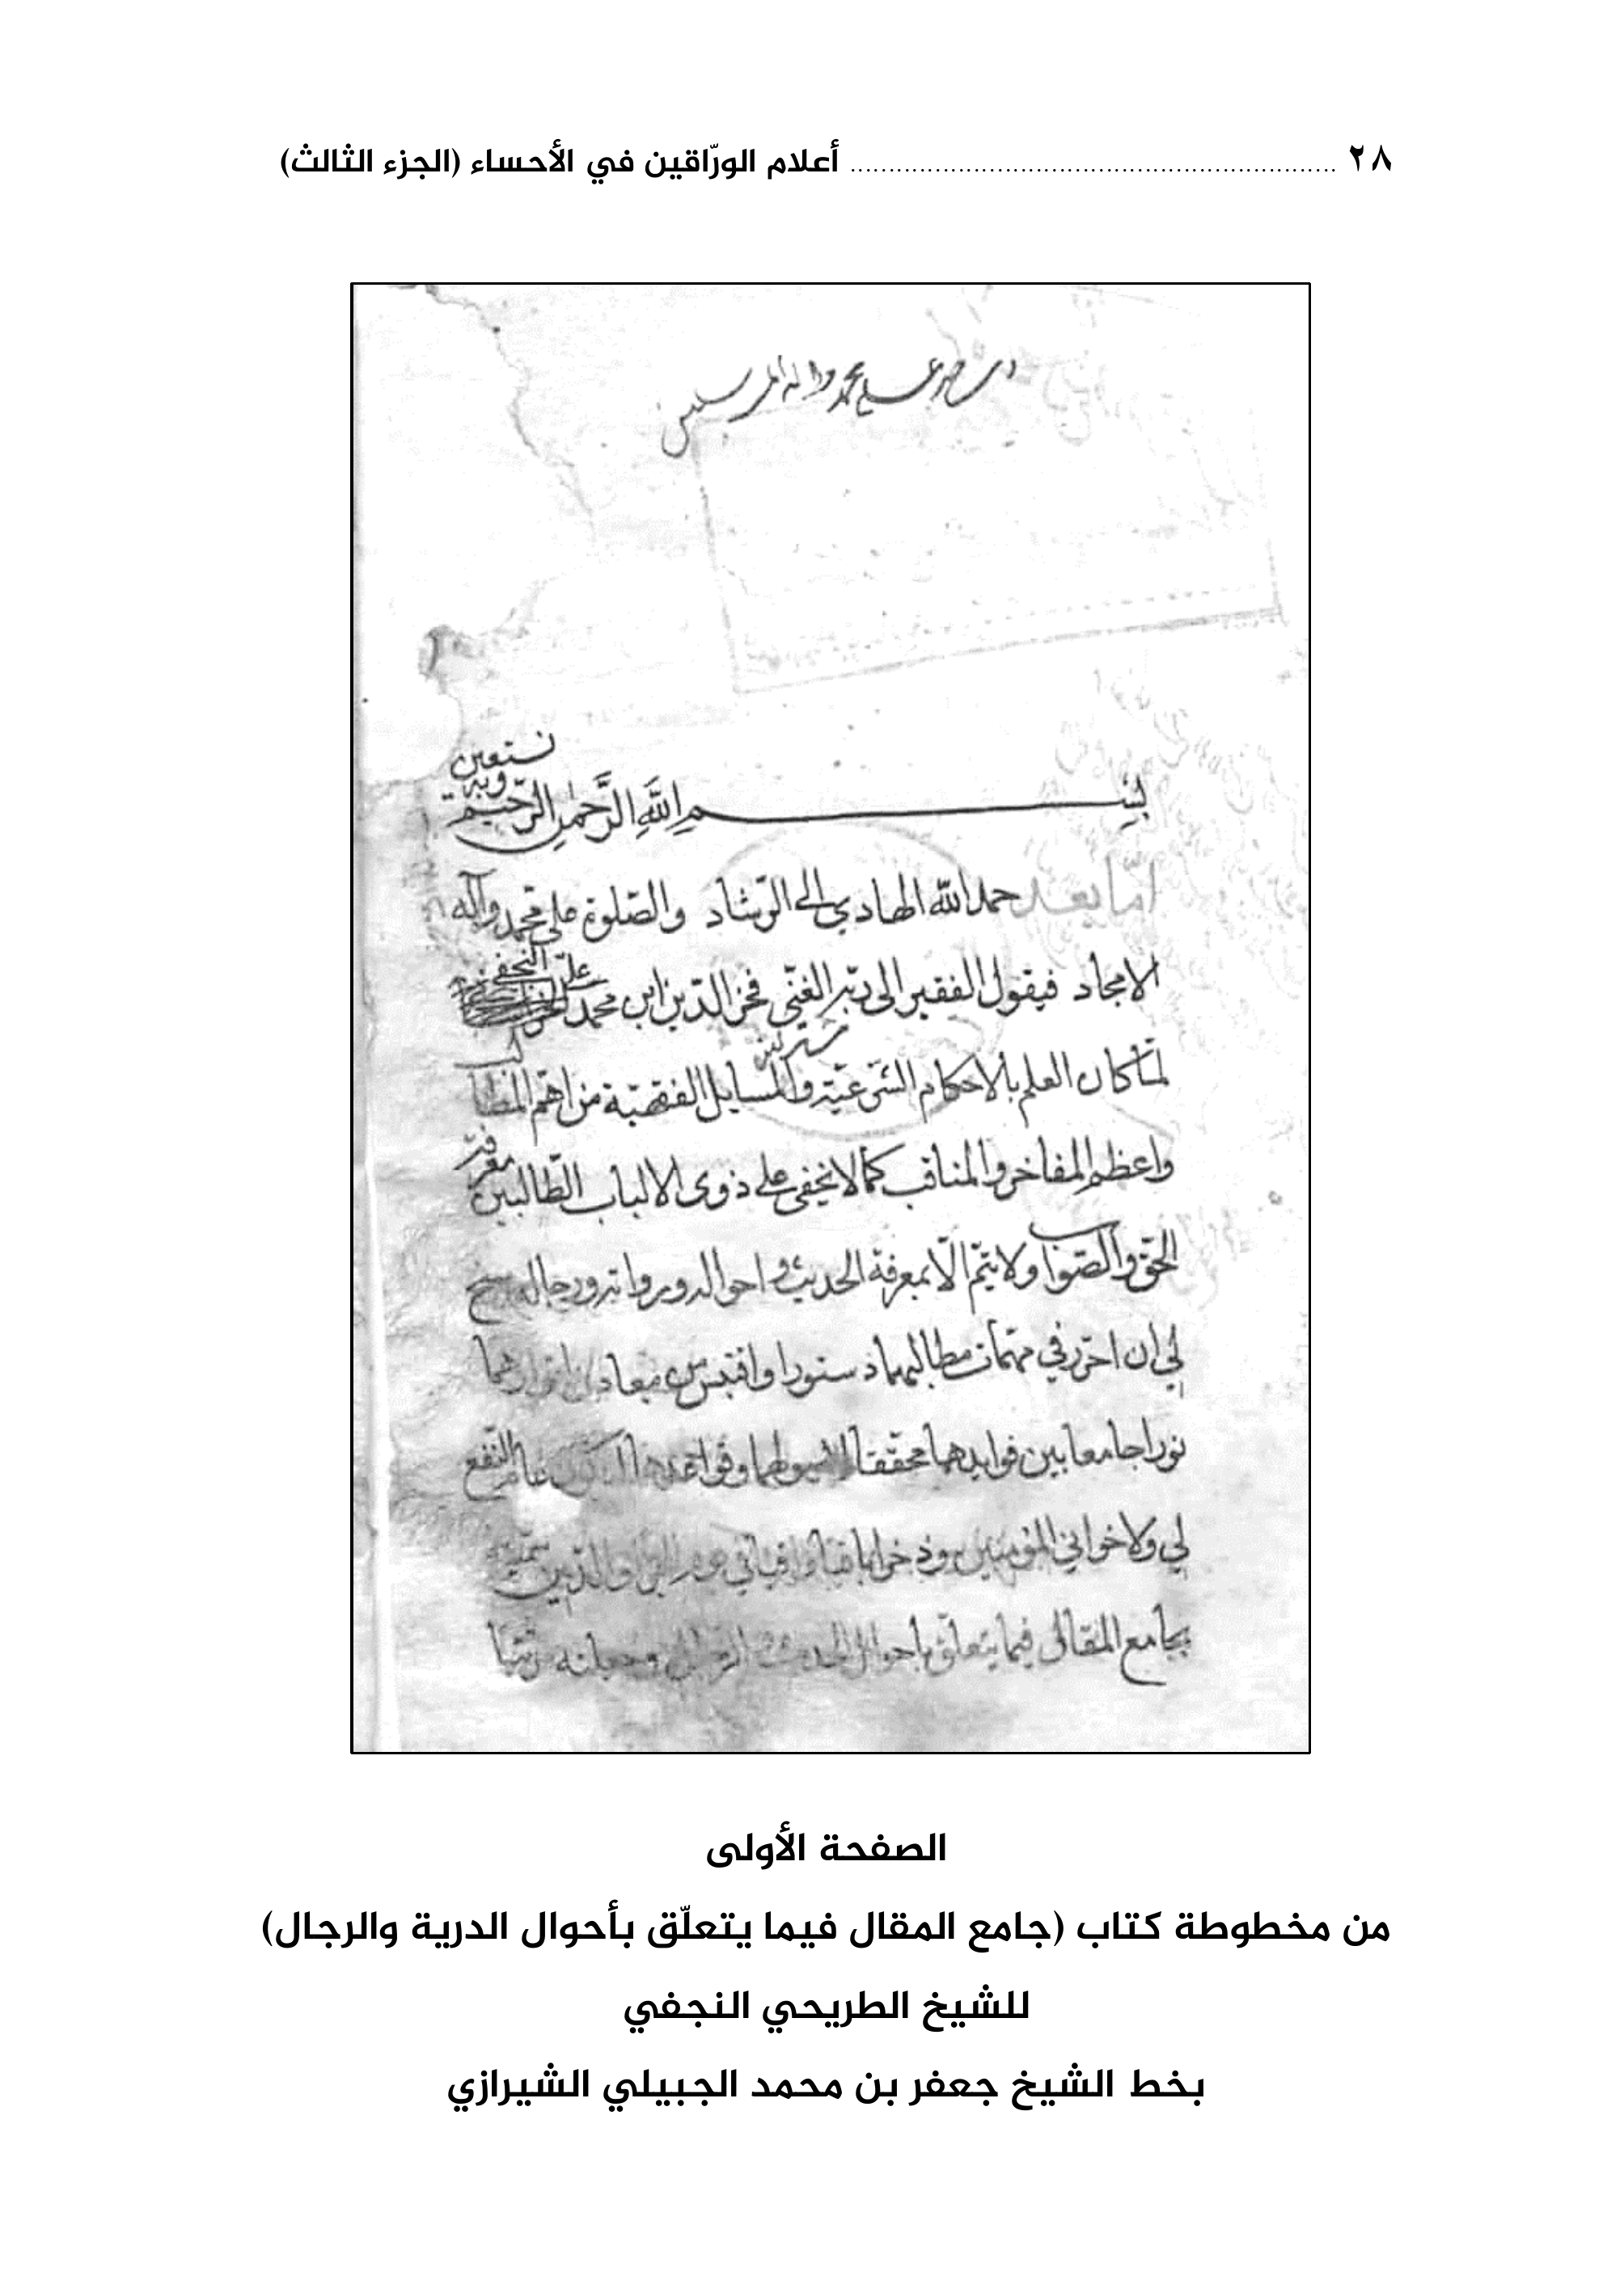 ٢٨ ................................................................ أعلام الورّاقين في الأحساء (الجزء الثالث)
محمد واله المرسلين
نستعين
وبه
بسم الله الرَّحمٰن الرّحيم
امّا بعد حمد الله الهادي الى الرّشاد والصّلوة على محمد وآله
الامجاد فيقول الفقير الى ربّه الغنّي فخر الدّين ابن محمد علّي النجفي
لمّا كان العلم بالاحكام الشّرعيّة والمسايل الفقهيّة من اهمّ المطالب
واعظم المفاخر والمناقب كما لا يخفى على ذوى الالباب الطّالبين معرفة
الحقّ والصّواب ولا يتمّ الّا بمعرفة الحديث و احواله و ورجاله سنح
لي ان احرّر في مهمّات مطالبهما دستورا واقتبس من انوارهما
نورا جامعا بين فوايدهما محققا لاصولهما وقواعدهما النّفع
لي ولاخواني المؤمنين وذخرا باقيا والدّين
بجامع المقال فيما يتعلّق باحوال الحديث
الصفحة الأولى
من مخطوطة كتاب (جامع المقال فيما يتعلّق بأحوال الدرية والرجال)
للشيخ الطريحي النجفي
بخط الشيخ جعفر بن محمد الجبيلي الشيرازي